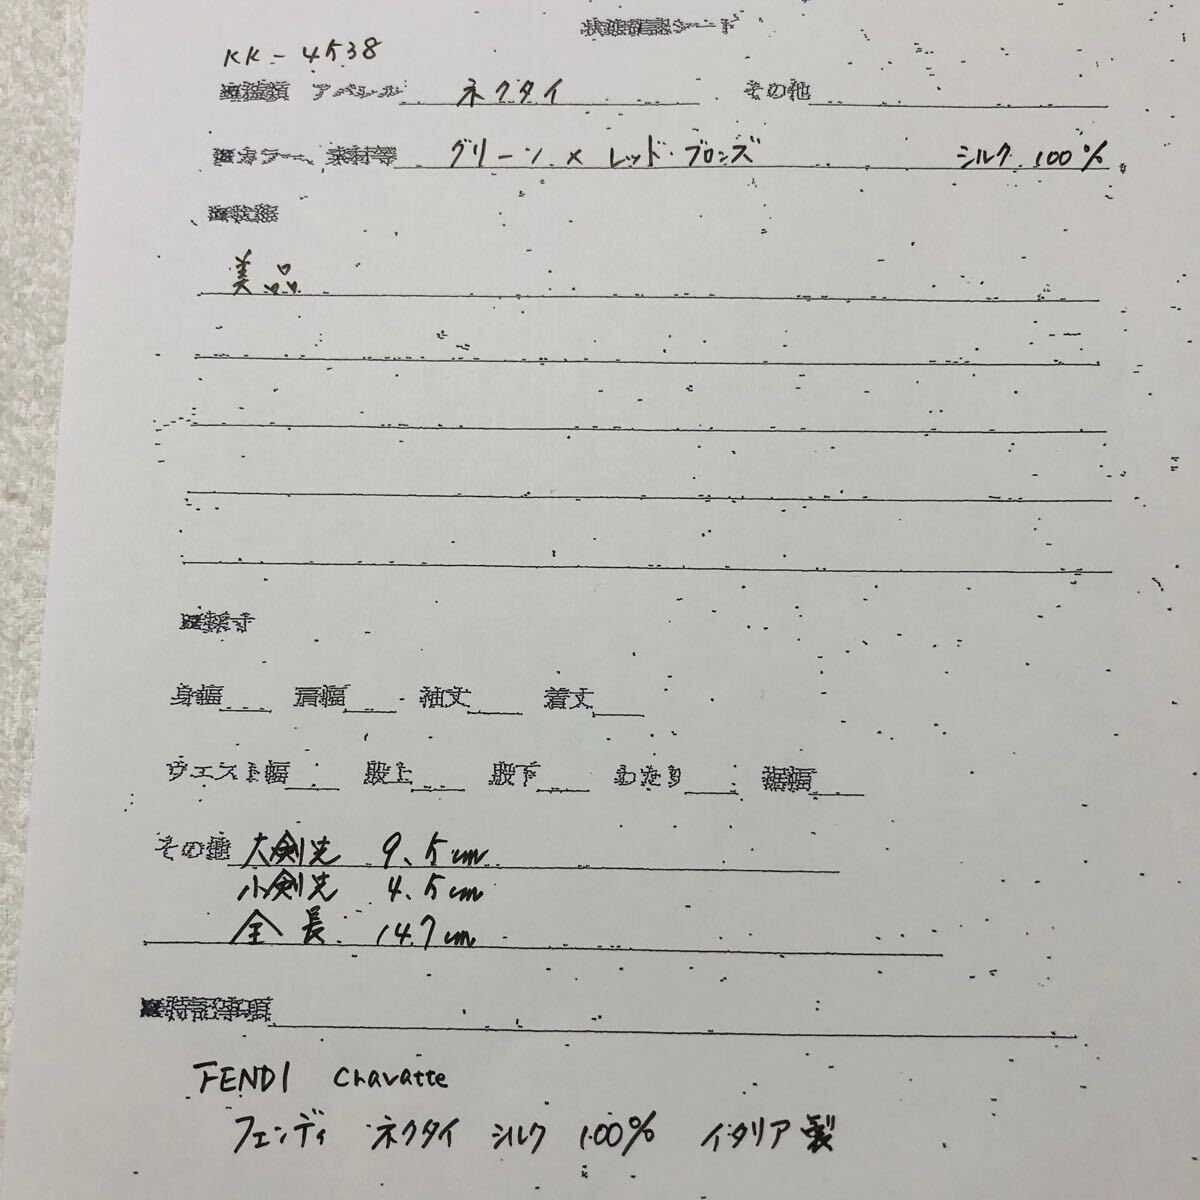 状態確認シート
KK-4538
■種類 アパレル ネクタイ その他
■カラー、素材等 グリーン × レッド・ブロンズ シルク 100%
■状態
美品
■採寸
身幅 肩幅 袖丈 着丈
ウエスト幅 股上 股下 わたり 裾幅
その他 大剣先 9.5cm
小剣先 4.5cm
全長 147cm
■特記事項
FENDI Chavatte
フェンディ ネクタイ シルク 100% イタリア製